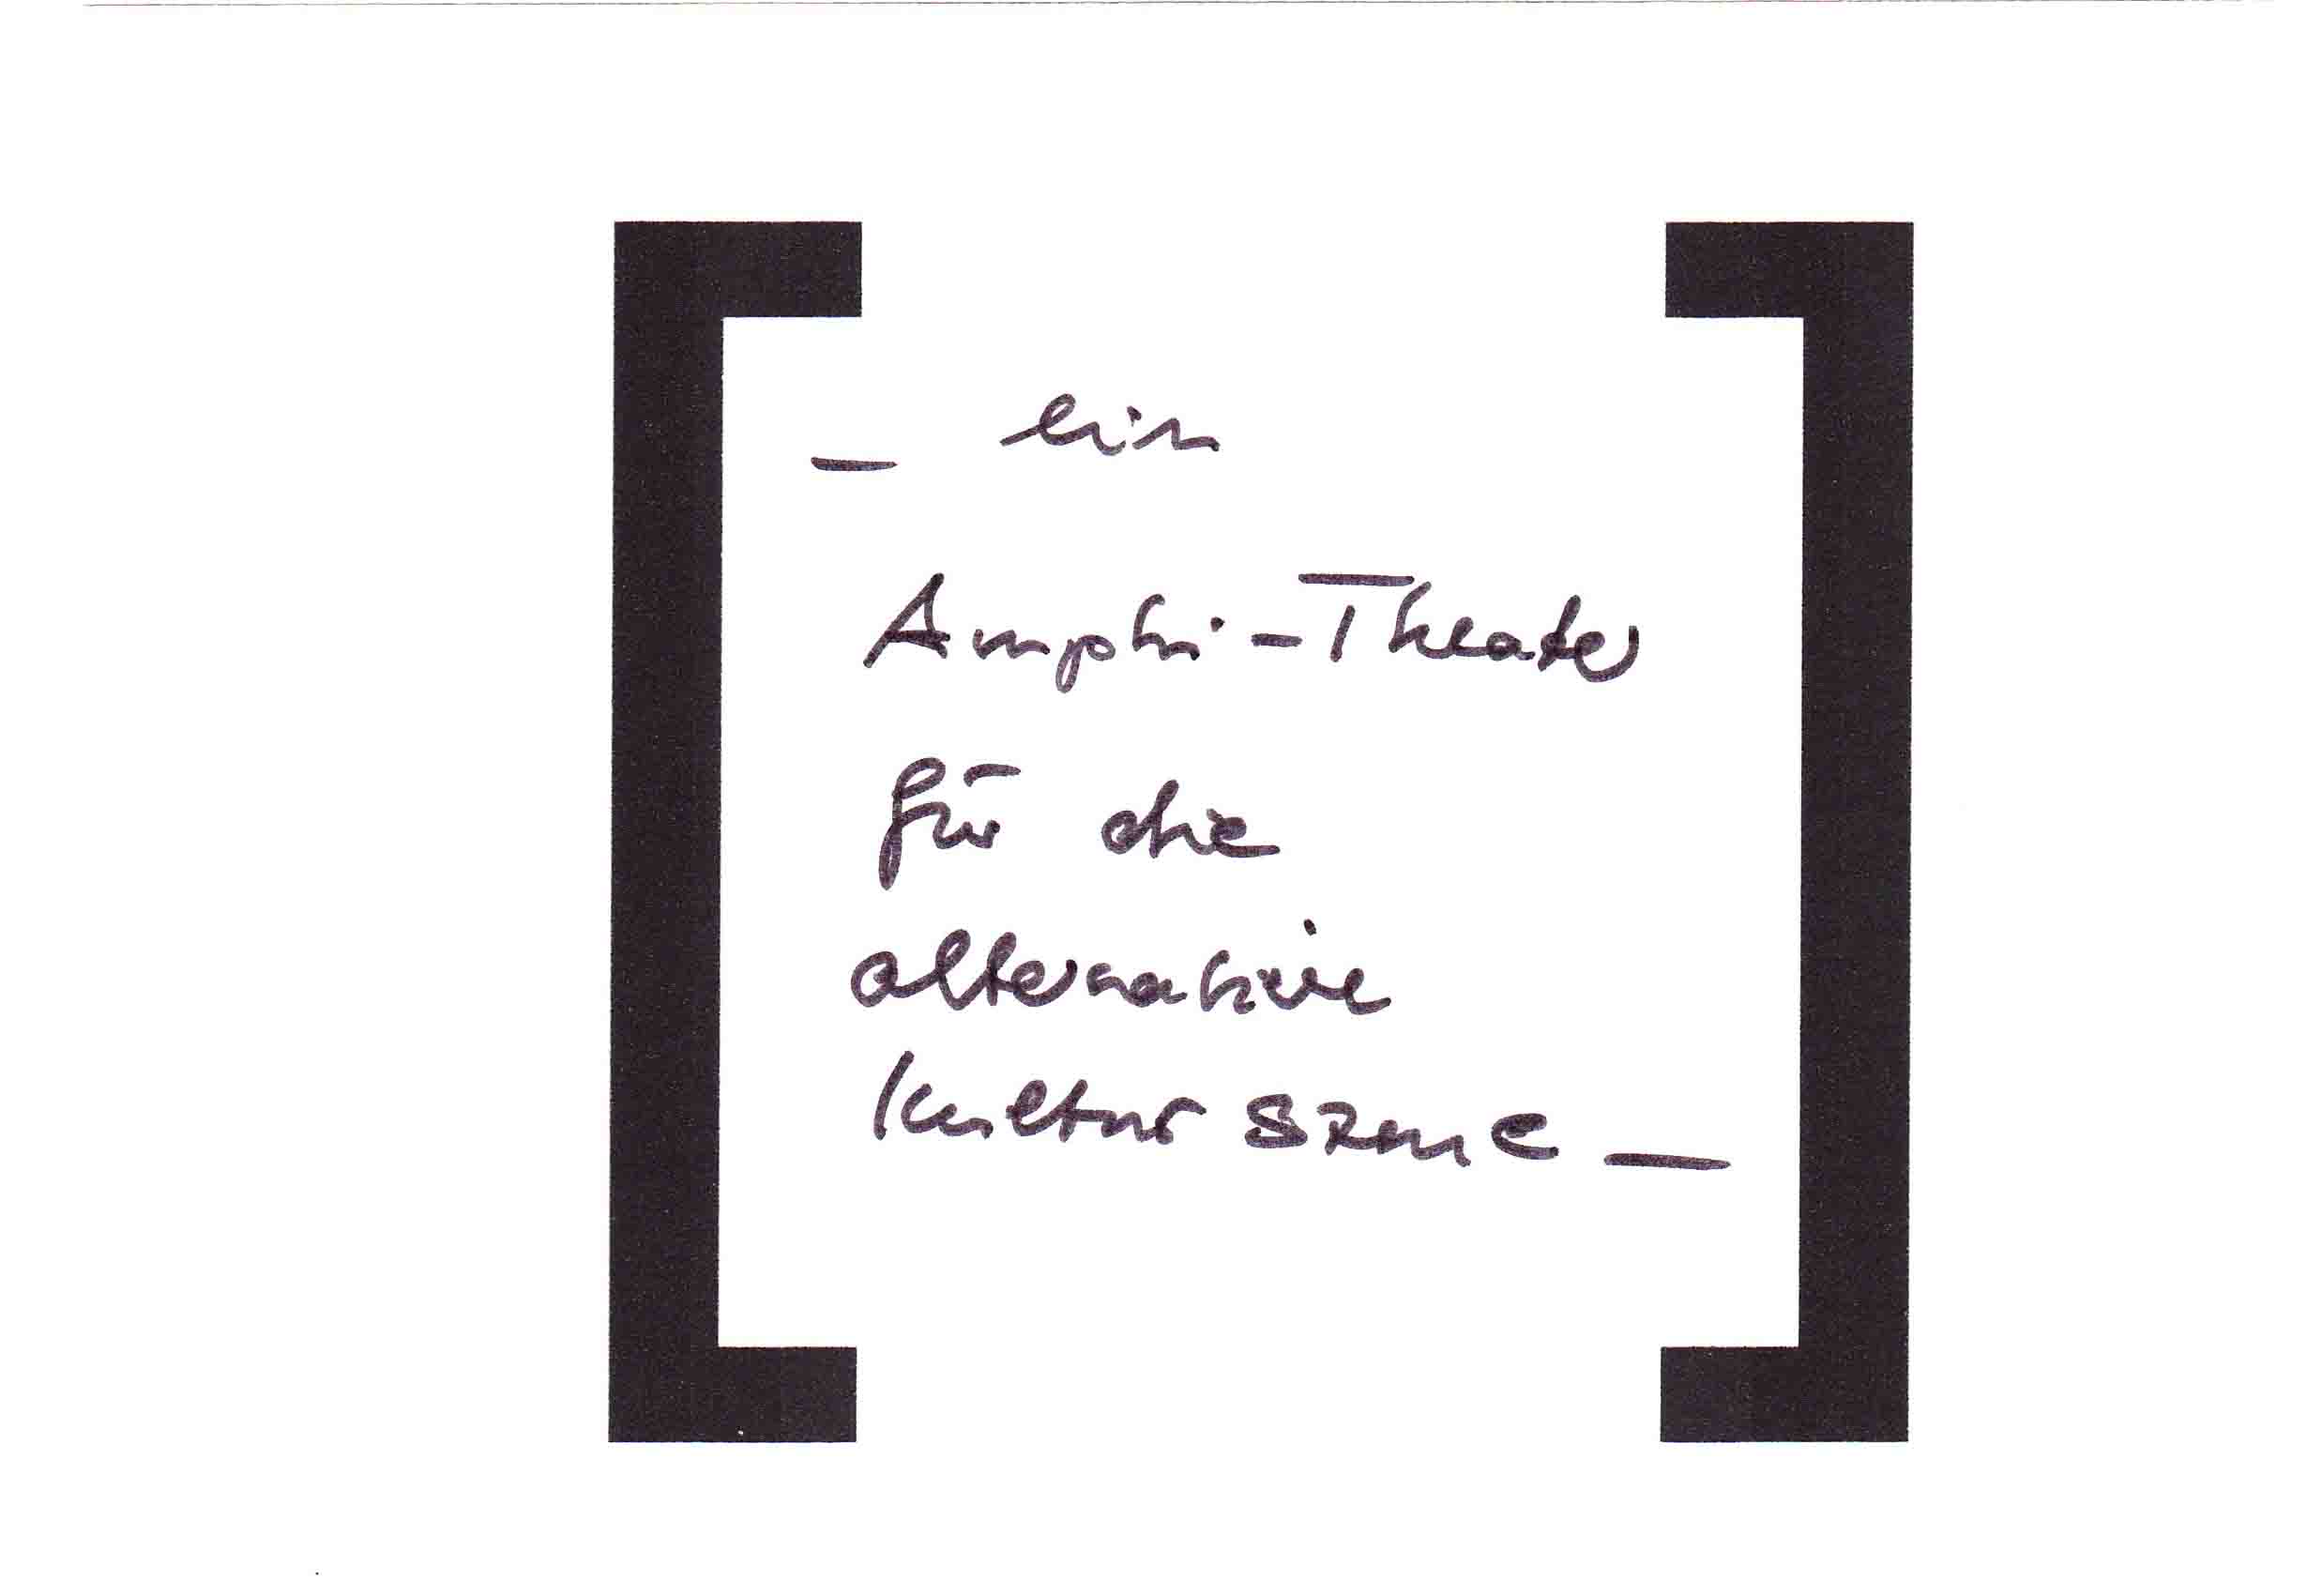 _ ein
Amphi-Theater
für die
alternative
Kultur szene _